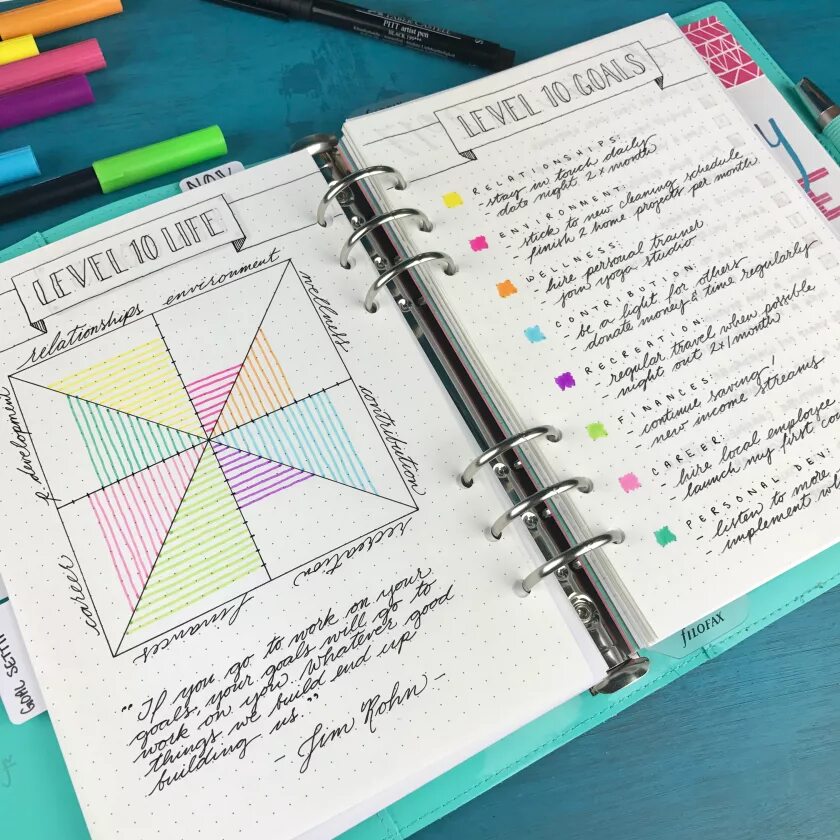 FABER-CASTELL
PITT artist pen
NOV
LEVEL 10 LIFE
relationships
environment
wellness
contribution
recreation
finances
career
p. development
"If you go to work on your
goals, your goals will go to
work on you. Whatever good
things we build end up
building us."
- Jim Rohn -
GOAL SETTI
LEVEL 10 GOALS
RELATIONSHIPS:
- stay in touch daily
- date night 2x/month
ENVIRONMENT:
- stick to new cleaning schedule
- finish 2 home projects per month
WELLNESS:
- hire personal trainer
- join yoga studio
CONTRIBUTION:
- be a light for others
- donate money & time regularly
RECREATION:
- regular travel when possible
- night out 2x/month
FINANCES:
- continue saving!
- new income streams
CAREER:
- hire local employee
- launch my first cou
PERSONAL DEV:
- listen to more
- implement wh
filofax